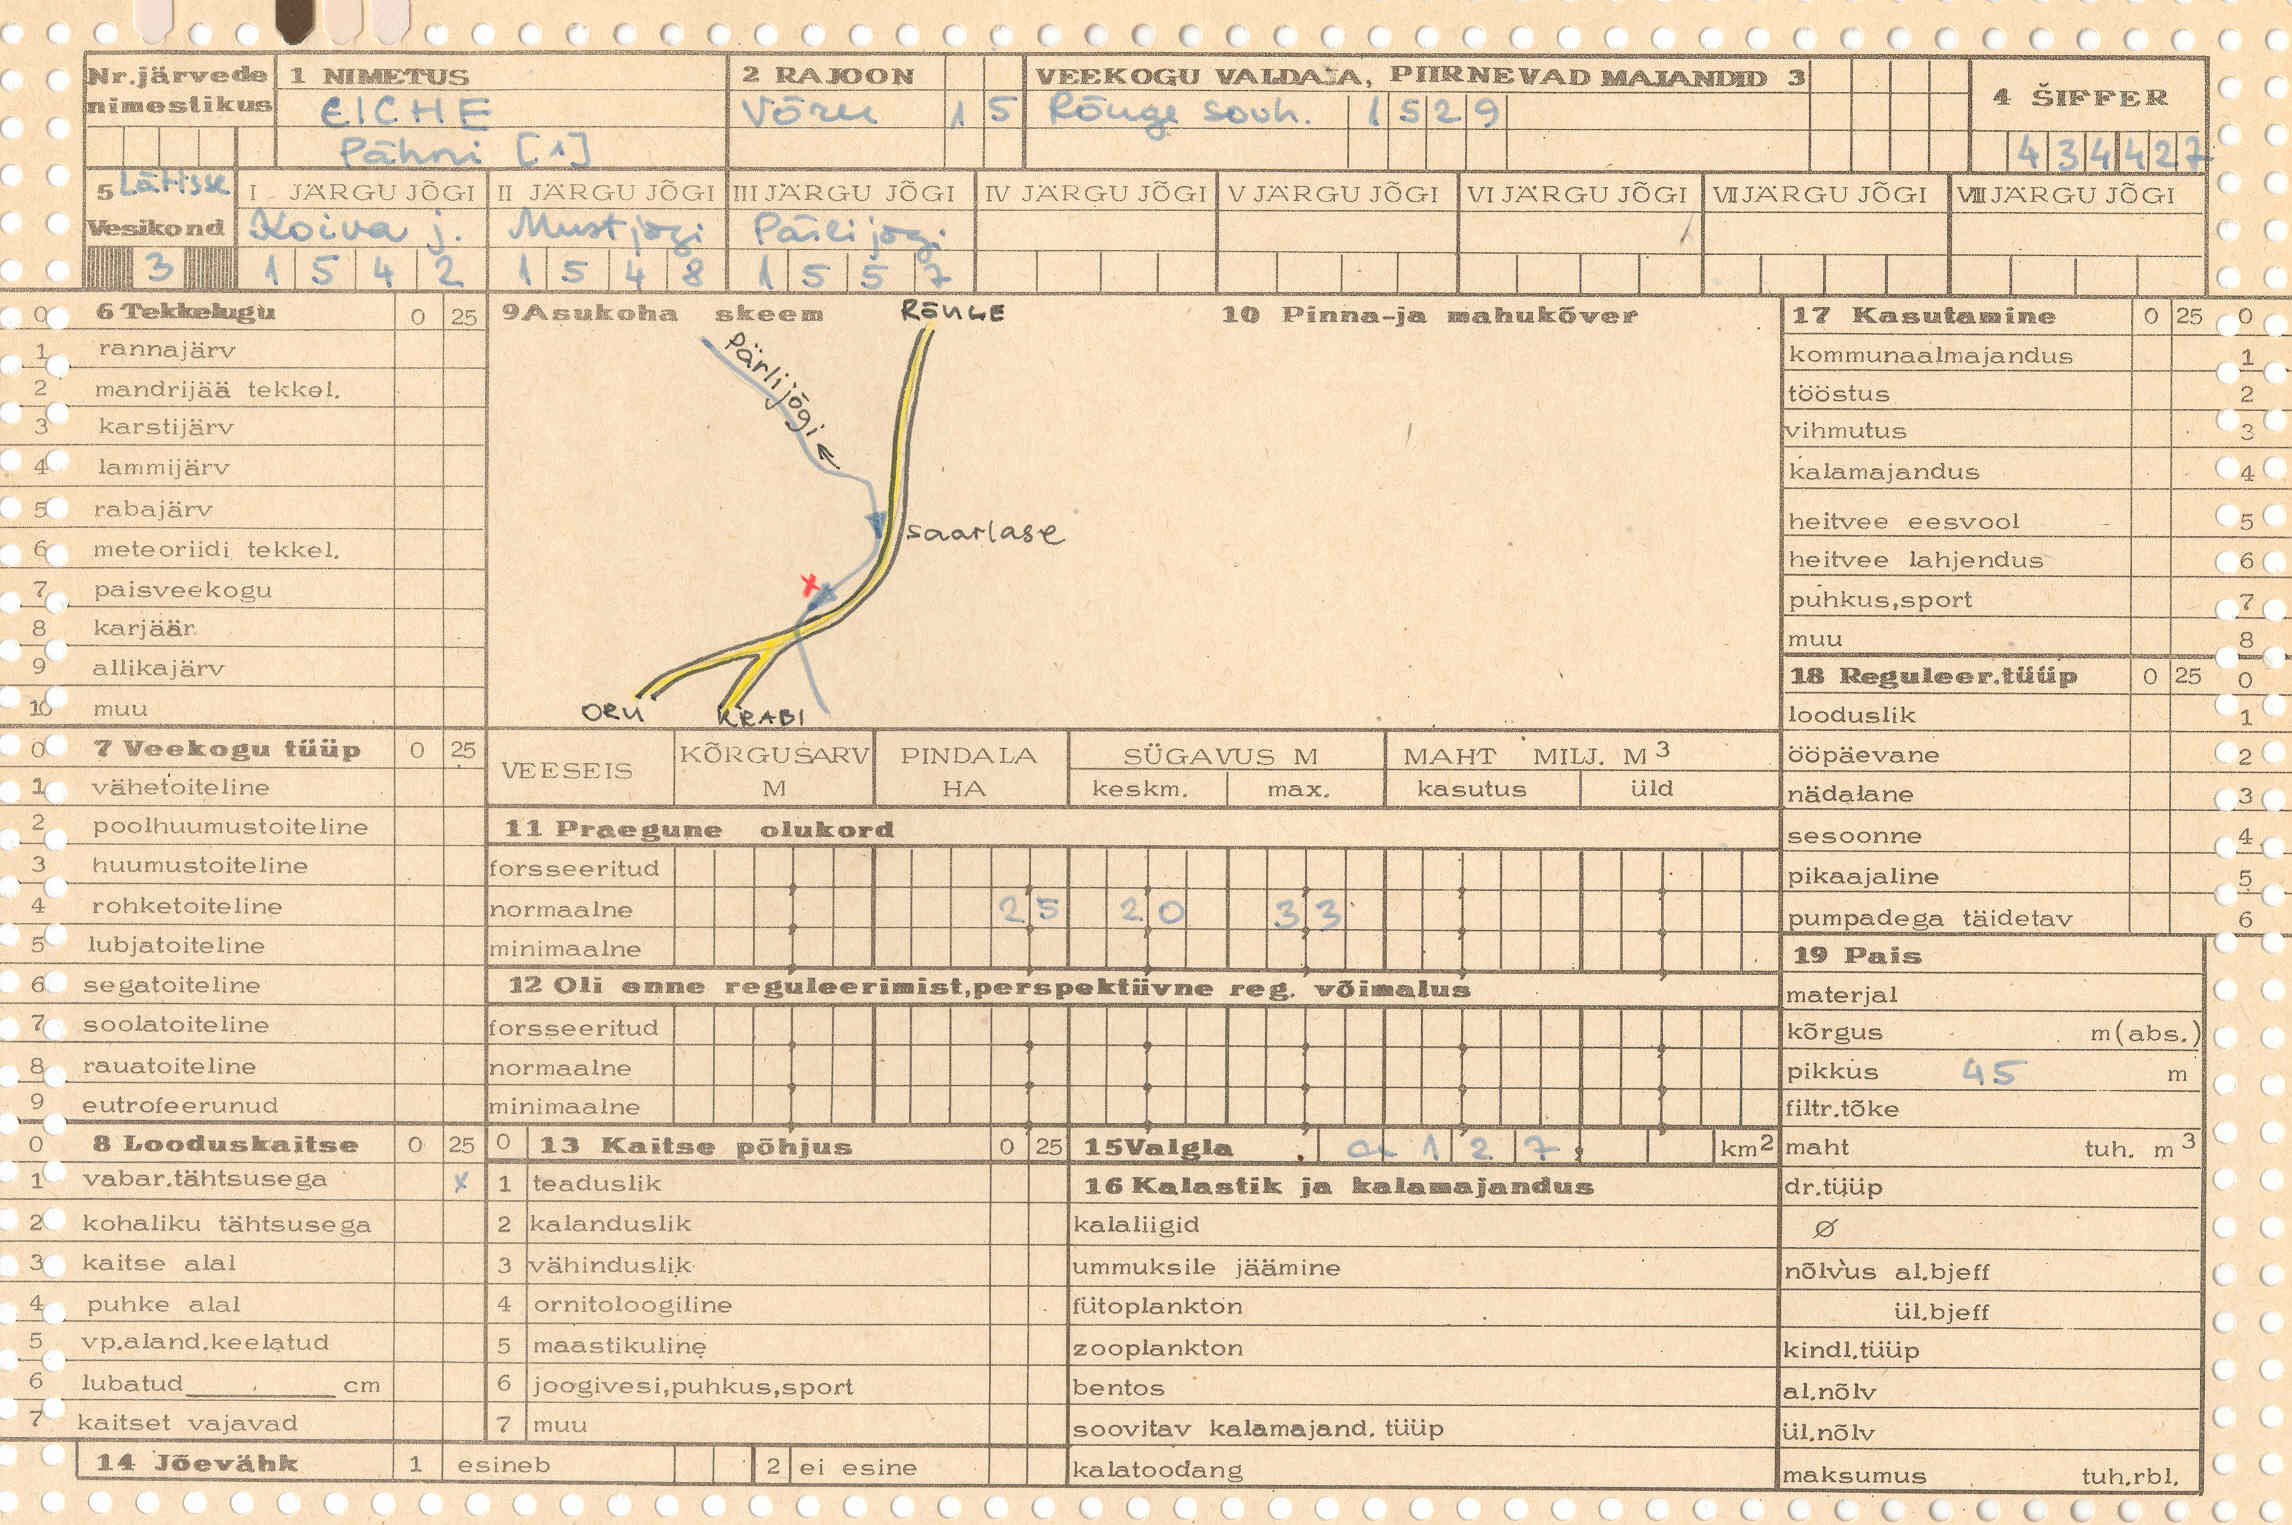 Nr.järvede nimestikus
1 NIMETUS
EICHE
Pähni [1]
2 RAJOON
Võru 15
VEEKOGU VALDAJA, PIIRNEVAD MAJANDID 3
Rõuge sovh. 1529
4 ŠIFFER
434427
5 Lätisse
Vesikond
3
I JÄRGU JÕGI
Koiva j.
1542
II JÄRGU JÕGI
Mustjõgi
1548
III JÄRGU JÕGI
Pärlijõgi
1557
IV JÄRGU JÕGI
V JÄRGU JÕGI
VI JÄRGU JÕGI
VII JÄRGU JÕGI
VIII JÄRGU JÕGI
0 6 Tekkelugu 0 25
1 rannajärv
2 mandrijää tekkel.
3 karstijärv
4 lammijärv
5 rabajärv
6 meteoriidi tekkel.
7 paisveekogu
8 karjäär
9 allikajärv
10 muu
0 7 Veekogu tüüp 0 25
1 vähetoiteline
2 poolhuumustoiteline
3 huumustoiteline
4 rohketoiteline
5 lubjatoiteline
6 segatoiteline
7 soolatoiteline
8 rauatoiteline
9 eutrofeerunud
0 8 Looduskaitse 0 25
1 vabar.tähtsusega x
2 kohaliku tähtsusega
3 kaitse alal
4 puhke alal
5 vp.aland.keelatud
6 lubatud cm
7 kaitset vajavad
14 Jõevähk 1 esineb 2 ei esine
9 Asukoha skeem
RÕUGE
Pärlijõgi
saarlase
x
ORU
KRABI
10 Pinna-ja mahukõver
VEESEIS
KÕRGUSARV M
PINDALA HA
SÜGAVUS M
keskm. max.
MAHT MILJ. M3
kasutus üld
11 Praegune olukord
forsseeritud
normaalne 25 20 33
minimaalne
12 Oli enne reguleerimist,perspektiivne reg. võimalus
forsseeritud
normaalne
minimaalne
0 13 Kaitse põhjus 0 25
1 teaduslik
2 kalanduslik
3 vähinduslik
4 ornitoloogiline
5 maastikuline
6 joogivesi,puhkus,sport
7 muu
15 Valgla ca 127 km2
16 Kalastik ja kalamajandus
kalaliigid
ummuksile jäämine
fütoplankton
zooplankton
bentos
soovitav kalamajand. tüüp
kalatoodang
17 Kasutamine 0 25 0
kommunaalmajandus 1
tööstus 2
vihmutus 3
kalamajandus 4
heitvee eesvool 5
heitvee lahjendus 6
puhkus,sport 7
muu 8
18 Reguleer.tüüp 0 25 0
looduslik 1
ööpäevane 2
nädalane 3
sesoonne 4
pikaajaline 5
pumpadega täidetav 6
19 Pais
materjal
kõrgus m(abs.)
pikkus 45 m
filtr.tõke
maht tuh. m3
dr.tüüp
Ø
nõlvus al.bjeff
ül.bjeff
kindl.tüüp
al.nõlv
ül.nõlv
maksumus tuh.rbl.